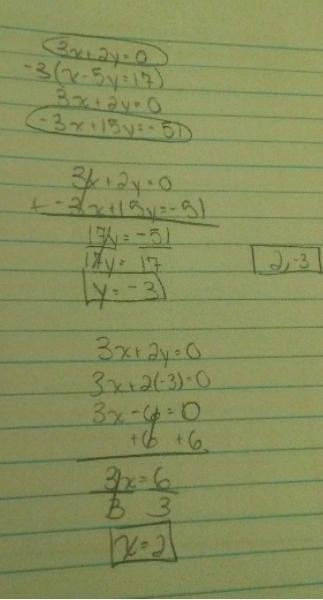 3x+2y=0
-3(x-5y=17)
3x+2y=0
-3x+15y=-51
3x+2y=0
+ -3x+15y=-51
17y = -51
17y = 17
y = -3
2,-3
3x+2y=0
3x+2(-3)=0
3x-6=0
+6 +6
3x=6
3 3
x=2